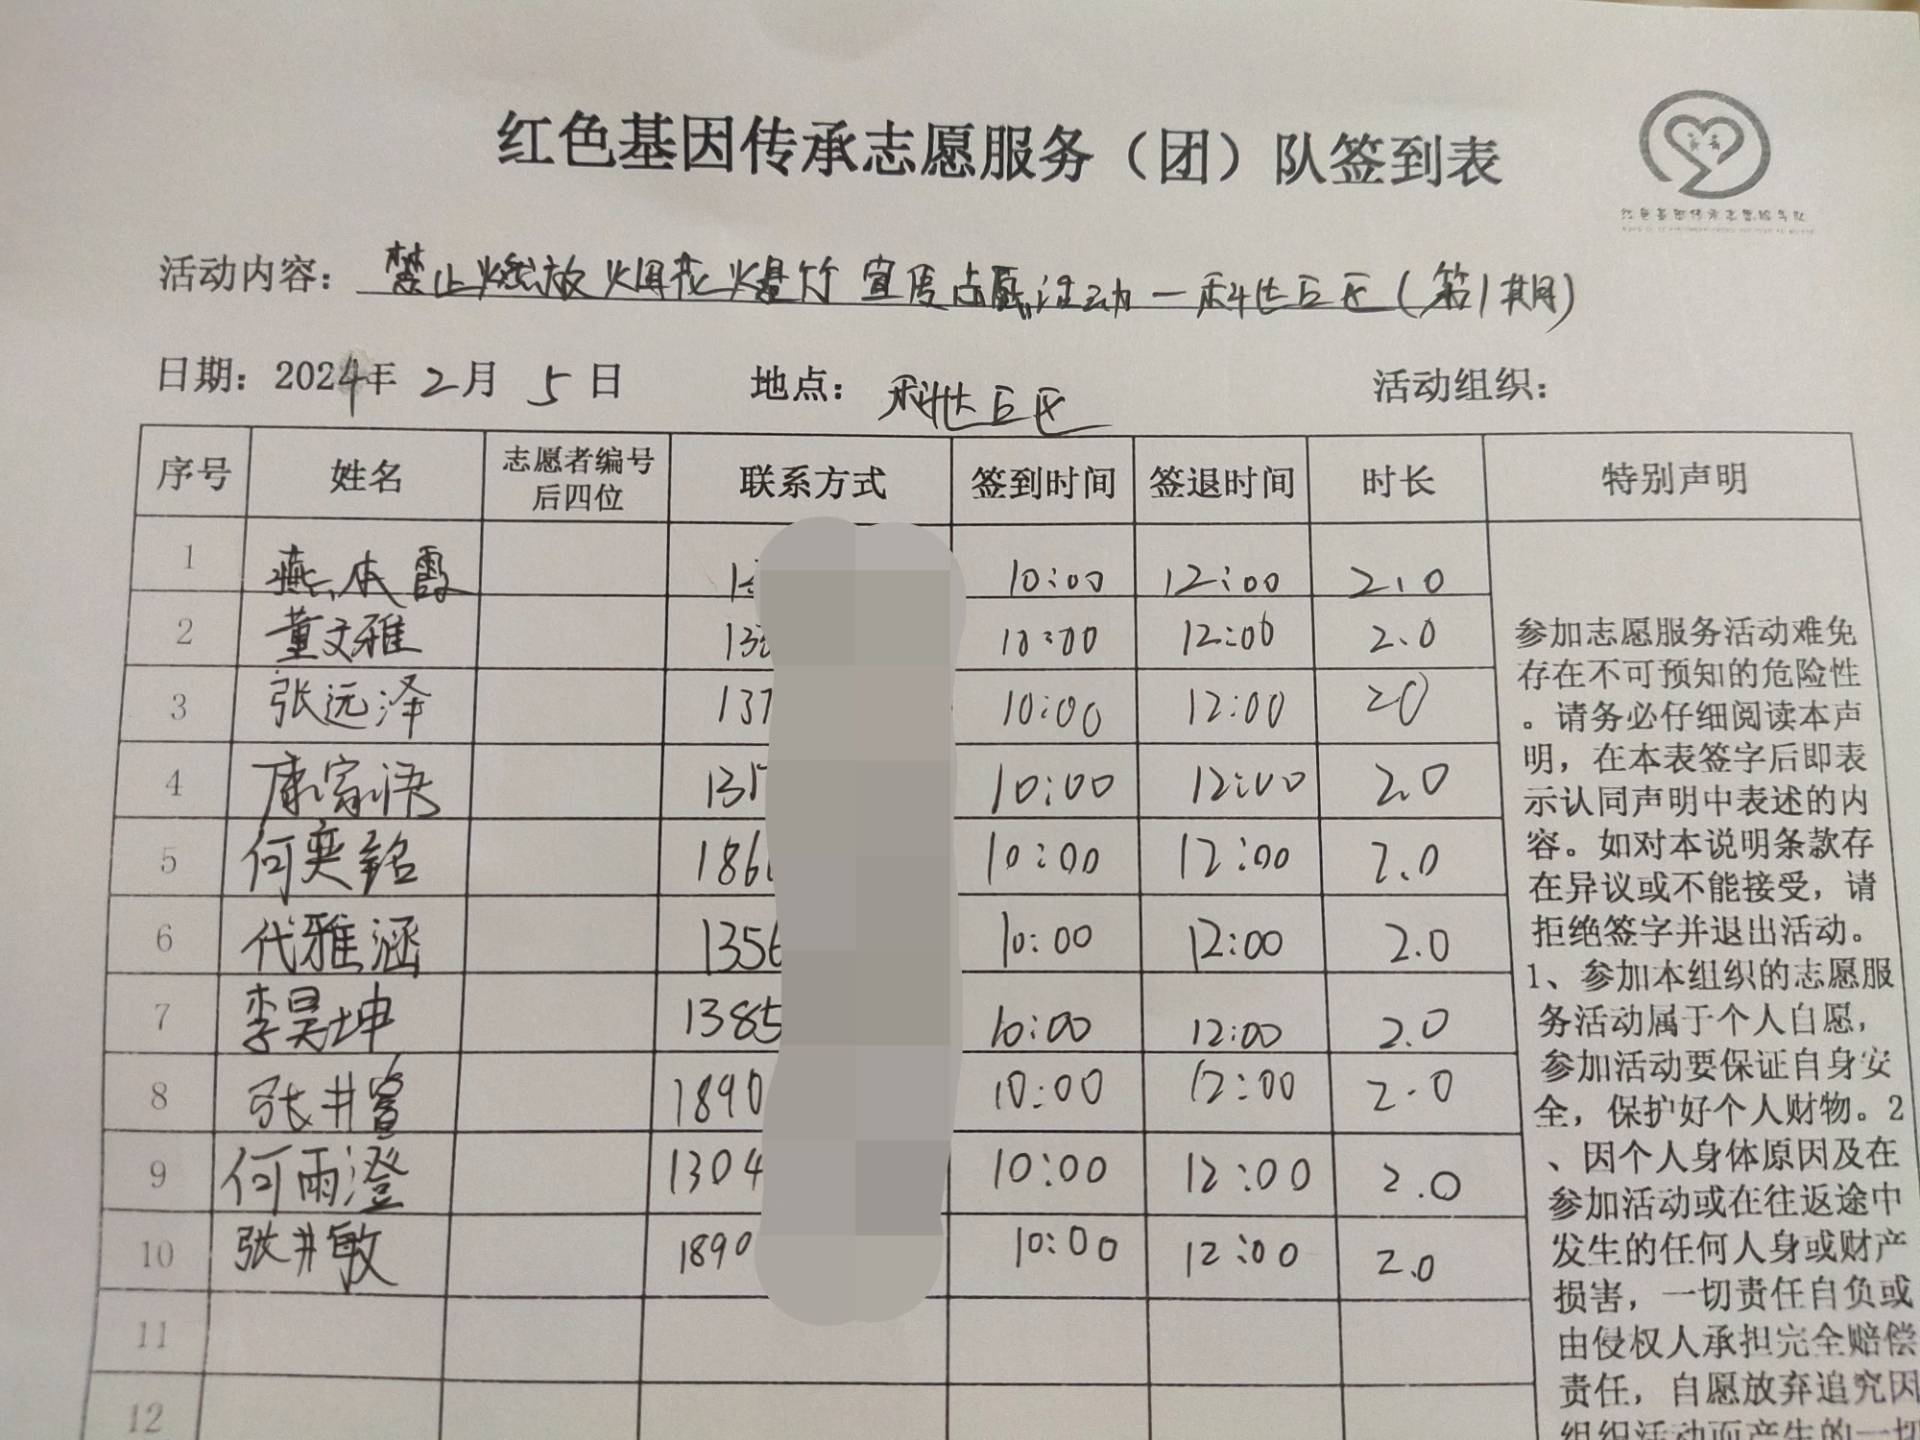 红色基因传承志愿服务（团）队签到表
红色基因传承志愿服务队
活动内容：禁止燃放烟花爆竹宣传志愿活动一科世巨区（第1期）
日期：2024年2月5日 地点：科世巨区 活动组织：
序号 姓名 志愿者编号后四位 联系方式 签到时间 签退时间 时长 特别声明
1 燕本霞 10:00 12:00 2.0
2 董文雅 13 10:00 12:00 2.0
3 张远泽 137 10:00 12:00 20
4 康家语 13 10:00 12:00 2.0
5 何奕铭 186 10:00 12:00 2.0
6 代雅涵 1356 10:00 12:00 2.0
7 李昊坤 1385 10:00 12:00 2.0
8 张井富 1890 10:00 12:00 2.0
9 何雨澄 1304 10:00 12:00 2.0
10 张井敏 1890 10:00 12:00 2.0
11
12
参加志愿服务活动难免
存在不可预知的危险性
。请务必仔细阅读本声
明，在本表签字后即表
示认同声明中表述的内
容。如对本说明条款存
在异议或不能接受，请
拒绝签字并退出活动。
1、参加本组织的志愿服
务活动属于个人自愿，
参加活动要保证自身安
全，保护好个人财物。2
、因个人身体原因及在
参加活动或在往返途中
发生的任何人身或财产
损害，一切责任自负或
由侵权人承担完全赔偿
责任，自愿放弃追究因
组织活动而产生的一切